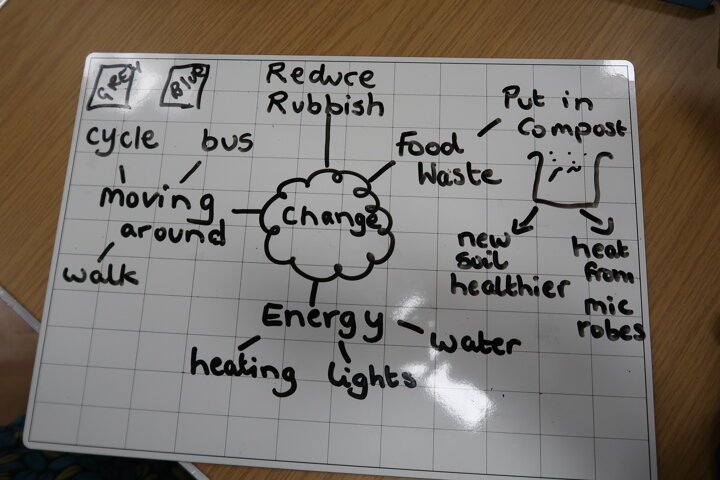 GREN
BLUE
Reduce
Rubbish
Put in
Compost
cycle
bus
Food
Waste
moving
around
Change
walk
new
soil
healthier
heat
from
mic
robes
Energy
water
heating
lights